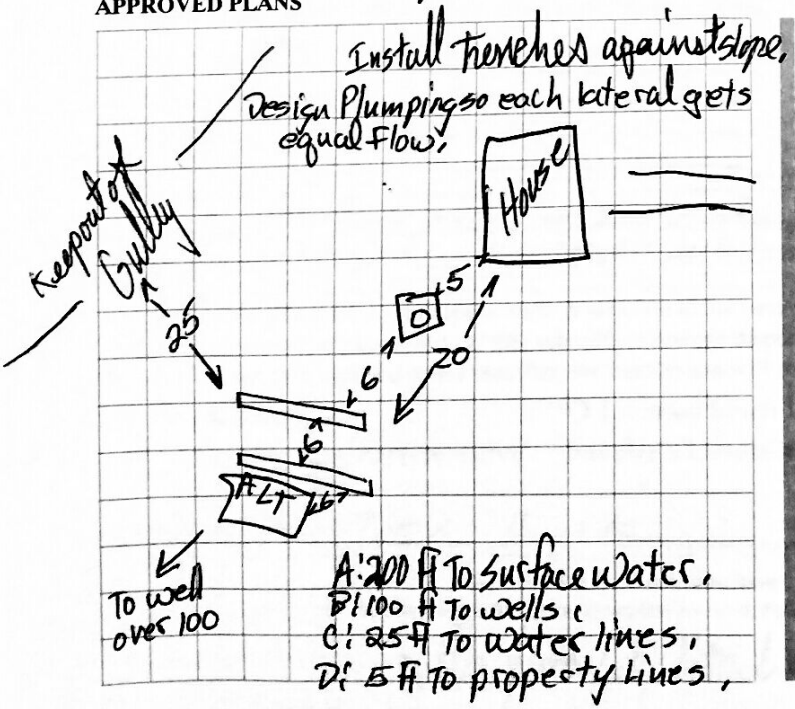 APPROVED PLANS
Install Trenches against slope.
Design Plumping so each lateral gets
equal flow.
House
Keep out of
Gulley
25
5
20
6
6
ALT
6
To well
over 100
A: 200 ft To Surface Water.
B: 100 ft To wells.
C: 25 ft To water lines.
D: 5 ft To property Lines.